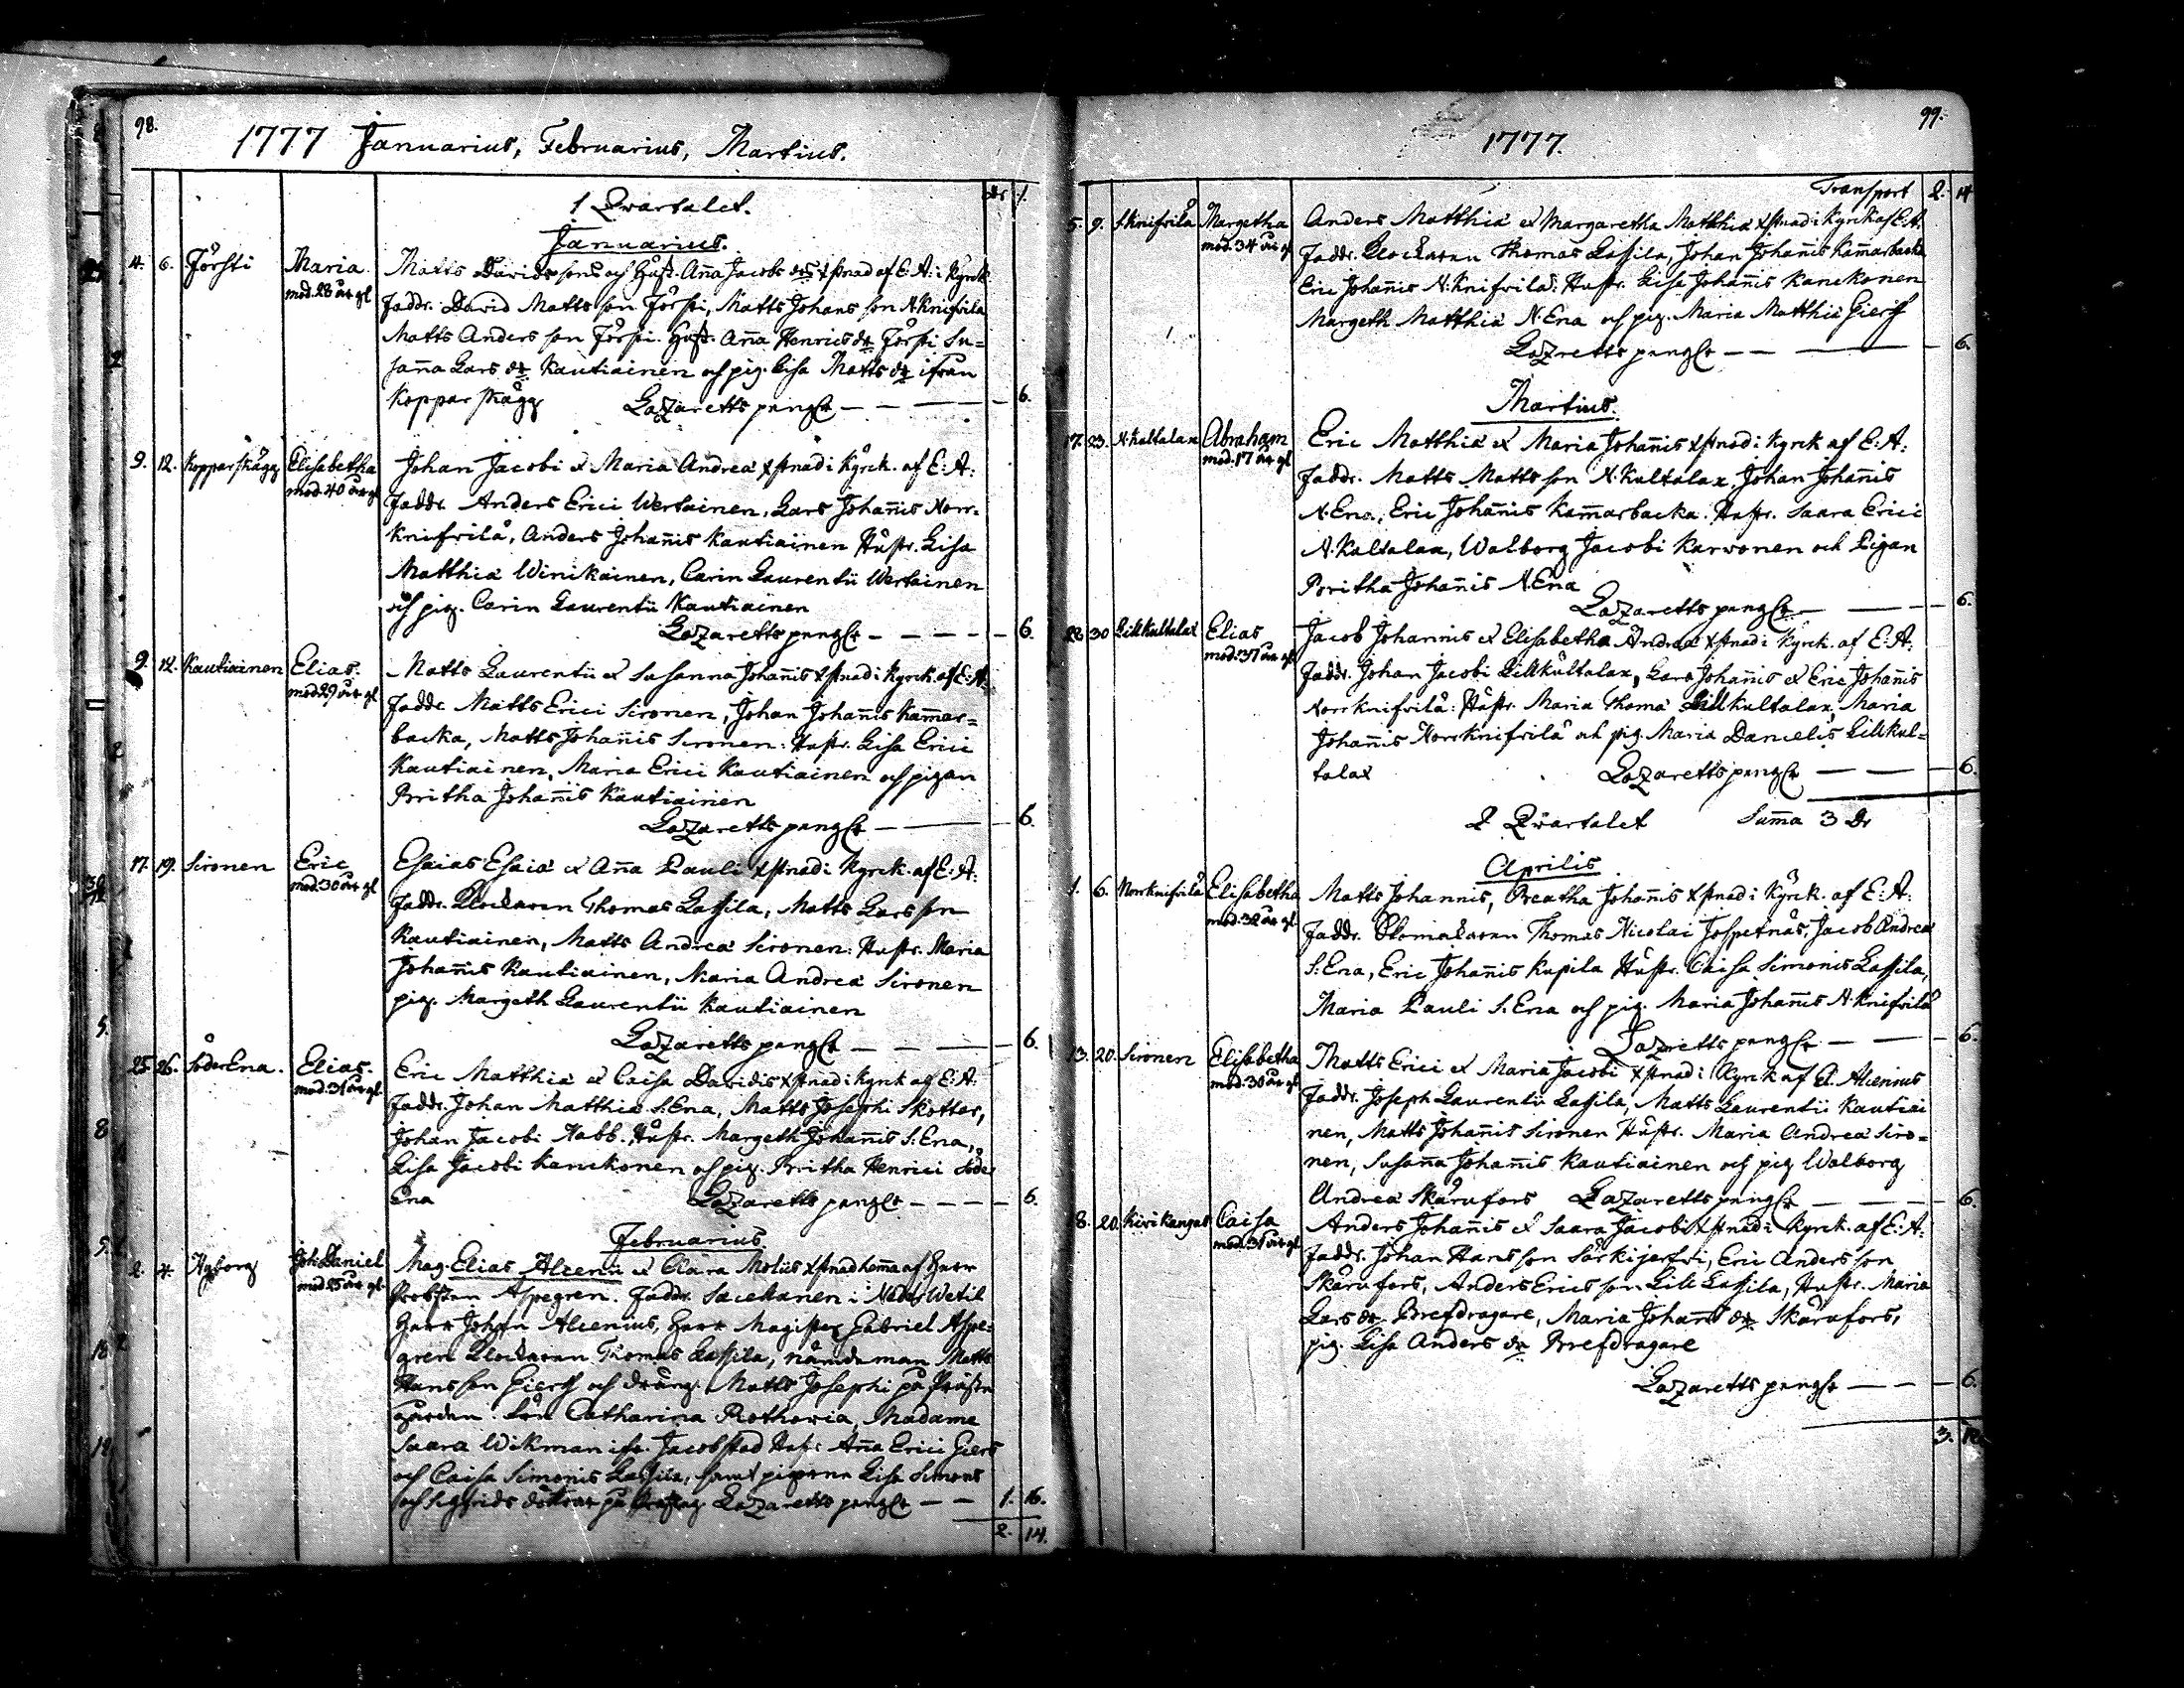 98.
1777 Januarius, Februarius, Martius.
dr /.
1 Qvartalet.
Januarius.
4. 6. Förssti Maria Matts Davids sons och Hust. Aña Jacobs dr xstnad af E: A: i Kyrk
mod. 28 år gl Faddr. David Matts son Förssti, Matts Johans son N.Knifvila
Matts Anders son Förssti. Hust. Aña Henrics dr Förssti Su=
saña Lars dr Kautiainen och pig. Lisa Matts dr ifrån
Kopparskägg Lazaretts pengr — — — — 6.
9. 12. Kopparskägg Elisabetha Johan Jacobi & Maria Andreä xstnad i Kyrck. af E: A:
mod. 40 år gl Faddr. Anders Erici Wertainen, Lars Johañis Norr-
Knifvilä, Anders Johañis Kautiainen Hustr. Lisa
Matthiä Winikainen, Carin Laurentii Wertainen
och pig. Carin Laurentii Kautiainen
Lazaretts pengr — — — — 6.
9. 12. Kautiainen Elias. Matts Laurentii & Susanna Johañis xstnad i Kyrck. af E: A:
mod 29 år gl Faddr. Matts Erici Sironen, Johan Johañis Kam̃ar=
backa, Matts Johañis Sironen: Hustr. Lisa Erici
Kautiainen, Maria Erici Kautiainen och pigan
Britha Johañis Kautiainen
Lazaretts pengr — — 6.
17. 19. Sironen Eric Esaias Esaiä & Aña Pauli xstnad i Kyrck. af E: A:
mod. 30 år gl Faddr. Klockaren Thomas Lassila, Matts Lars son
Kautiainen, Matts Andreä Sironen: Hustr. Maria
Johañis Kautiainen, Maria Andreä Sironen
pig. Margeth Laurentii Kautiainen
Lazaretts pengr — — — 6.
25. 26. SöderEna. Elias. Eric Matthiä & Caisa Davidis xstnad i Kyrck af E: A:
mod. 31 år gl. Faddr. Johan Matthiä S.Ena, Matts Josephi Skotter,
Johan Jacobi Nabb. Hustr. Margeth Johañis S: Ena,
Lisa Jacobi Kanckonen och pig. Britha Henrici Söder
Ena Lazaretts pengr — — — 6.
Februarius
2. 4. Joh: Daniel Mag. Elias Alcenii & Clara Molüs xstnad hem̃a af Herr
mod 25 år gl. Probsten Aspegren. Faddr. Sacellanen i Neder Wetil
Herr Johan Alcenius, Herr Magister Gabriel Aspe=
gren Klockaren Thomas Lassila, nämdeman Matts
Hans son Gierss och dräng. Matts Josephi på Präste
gården. Catharina Rothovia, Madame
Saara Wikman ifr. Jacobstad Hust: Aña Erici Giers
och Caisa Simonis Lassila, samt pigorna Lisa Simons
och Sigfrids döttrar på Lazaretts pengr — — 1. 16.
2. 14.
99.
1777.
Transport 2. 14
5. 9. S.Knifvilä Margetha Anders Matthiä & Margaretha Matthiä xstnad i Kyrck af E: A.
mod. 34 år gl Faddr. Klockaren Thomas Lassila, Johan Johañis Kam̃arbacka
Eric Johañis N: Knifvilä: Hustr. Lisa Johañis Kanckonen
Margeth Matthiä N.Ena och pig. Maria Matthiä Gierss
Lazretts pengr — — — 6.
Martius.
17. 23. N.Kaltalax Abraham Eric Matthiä & Maria Johañis xstnad i Kyrck af E: A:
mod. 17 år gl Faddr. Matts Matts son N.Kaltalax, Johan Johañis
N.Ena, Eric Johañis Kam̃arbacka. Hustr. Saara Erici
N.Kaltalax, Walborg Jacobi Karvonen och Pigan
Britha Johañis N.Ena
Lazaretts pengr — — 6.
28 30 Lillkaltalax Elias Jacob Johannis & Elisabetha Andreä xstnad i Kyrck. af E: A:
mod. 37 år gl Faddr. Johan Jacobi Lillkaltalax, Lars Johañis & Eric Johañis
Norrknifvilä: Hustr. Maria Thomä Lillkaltalax, Maria
Johañis Norrknifvilä och pig. Maria Danielis Lillkal=
talax Lazaretts pengr — — 6.
2 Qvartalet Sum̃a 3 Dr
Aprilis.
1. 6. Norrknifvilä Elisabetha Matts Johannis, Breatha Johañis xstnad i Kyrck. af E: A:
mod. 32 år gl Faddr. Thomas Nicolai, Jacob Andreä
S: Ena, Eric Johañis Kupila Hustr. Caisa Simonis Lassila,
Maria Pauli S: Ena och pig. Maria Johañis N: Knifvilä
Lazretts pengr — — 6.
13. 20. Sironen Elisabetha Matts Erici & Maria Jacobi xstnad i Kyrck af El. Alcenius
mod. 30 år gl Faddr. Joseph Laurentii Lassila, Matts Laurentii Kautiai
nen, Matts Johañis Sironen Hustr. Maria Andreä Siro=
nen, Susaña Johañis Kautiainen och pig Walborg
Andreä Skärufors Lazaretts pengr — — 6
8. 20. Kirikangas Caisa Anders Johañis & Saara Jacobi xstnad i Kyrck. af E: A:
mod. 31 år gl Faddr. Johan Hans son Särkijerfvi, Eric Anders son
Skärufors, Anders Erics son Lill Lassila, Hustr. Maria
Lars dr Brefdragare, Maria Johans dr Skärufors,
pig. Lisa Anders dr Brefdragare
Lazaretts pengr — — 6.
3.